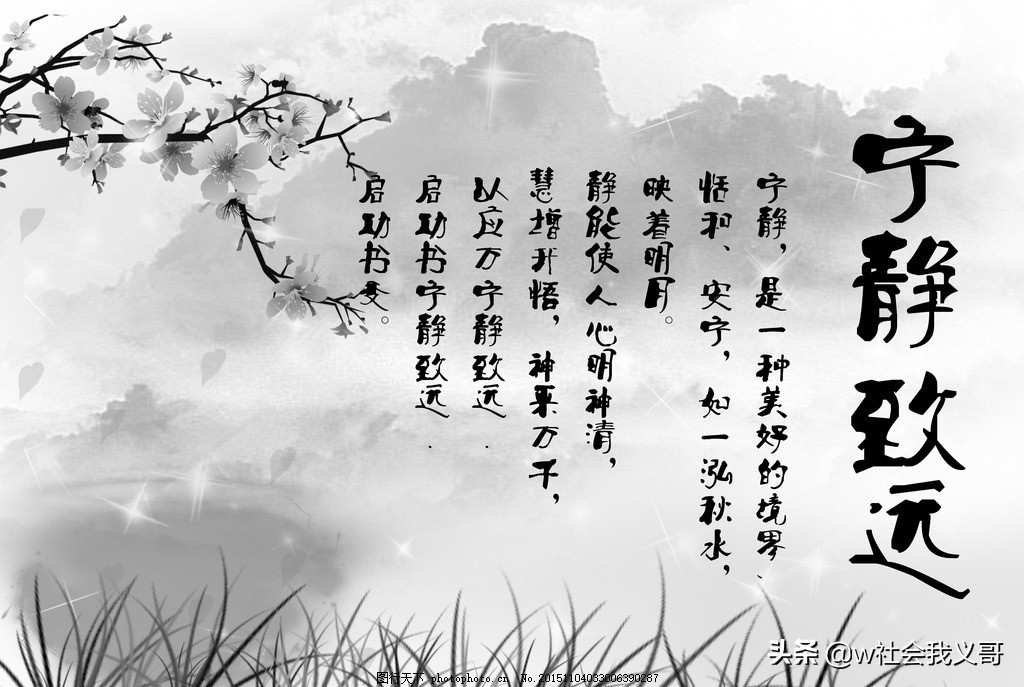 宁静致远
宁静，是一种美好的境界、
恬和、安宁，如一泓秋水，
映着明月。
静能使人心明神清，
慧增开悟，神采万千，
以应万宁静致远．
启功书宁静致远．
启功书变。
头条 @w社会我义哥
图行天下 photophoto.cn No.20151104033006390287